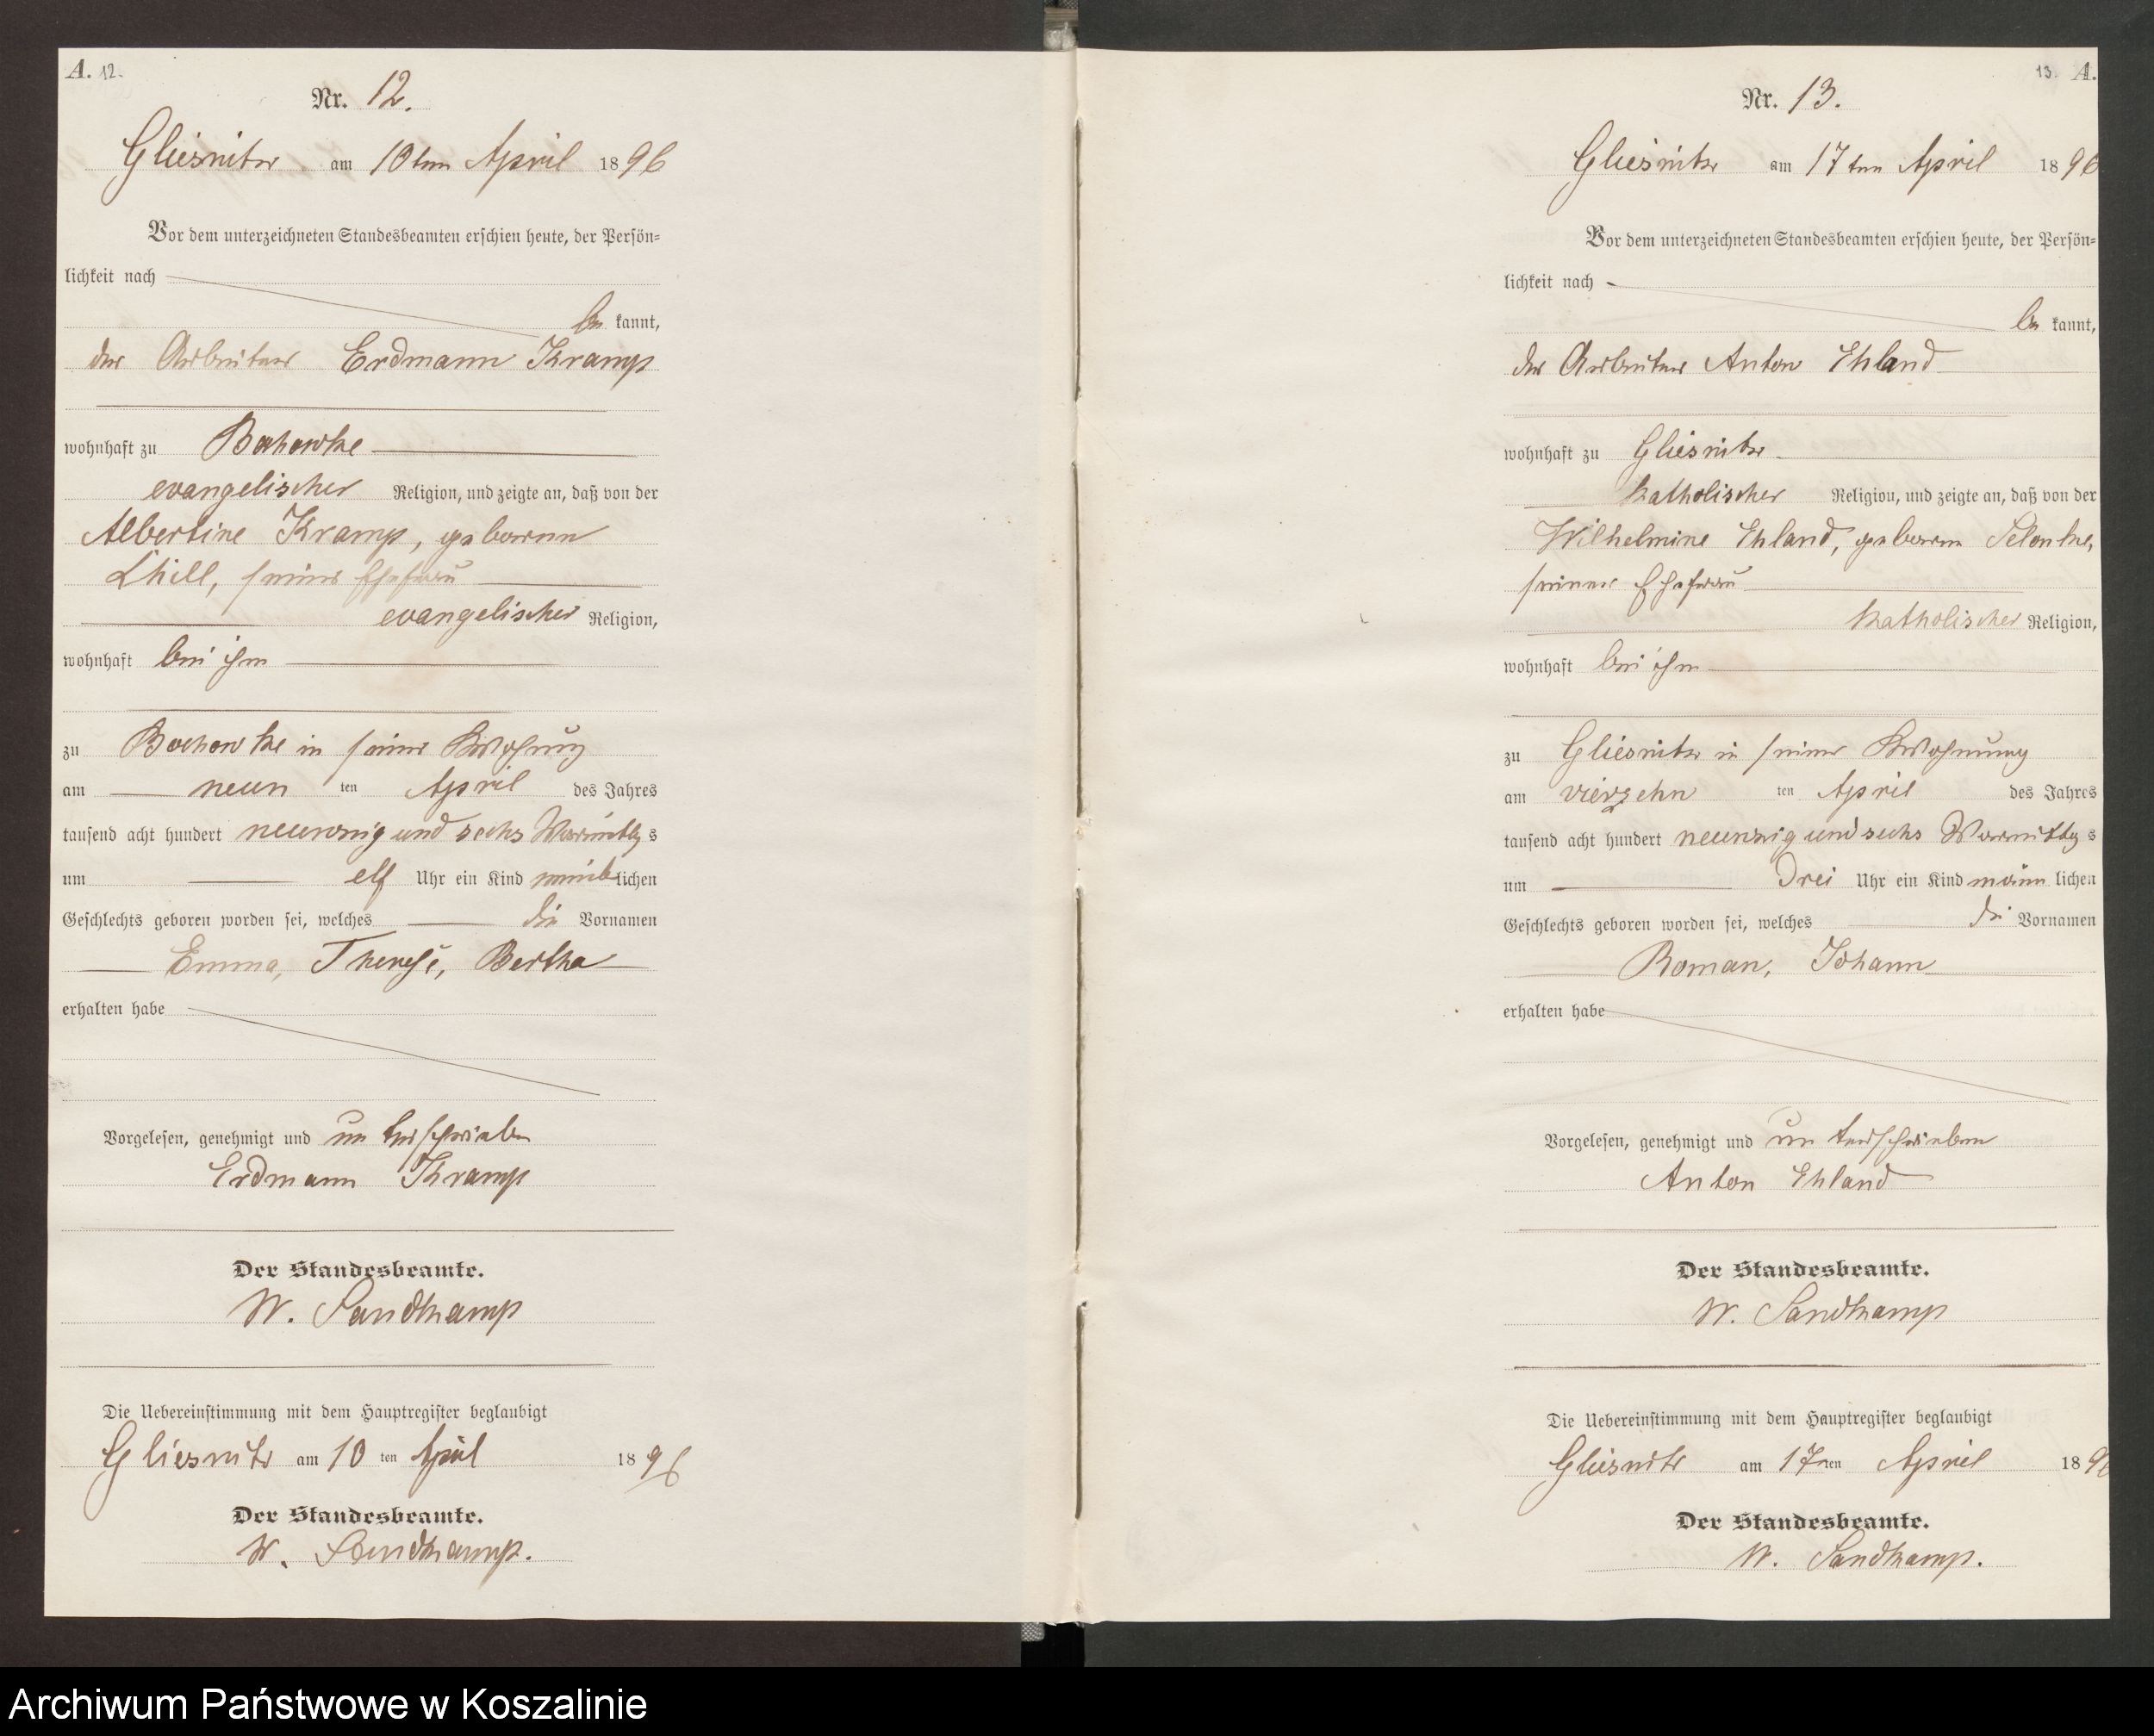 A. 12.
Nr. 12.
Gliesnitz am 10ten April 1896
Vor dem unterzeichneten Standesbeamten erschien heute, der Persön=
lichkeit nach
be kannt,
der Arbeiter Erdmann Kramp
wohnhaft zu Bochowke
evangelischer Religion, und zeigte an, daß von der
Albertine Kramp, geborenen
seiner Ehefrau
evangelischer Religion,
wohnhaft bei ihm
zu Bochowke in seiner Wohnung
am neun ten April des Jahres
tausend acht hundert neunzig und sechs Vormittags
um elf Uhr ein Kind weiblichen
Geschlechts geboren worden sei, welches die Vornamen
Emma, Therese, Bertha
erhalten habe
Vorgelesen, genehmigt und unterschrieben
Erdmann Kramp
Der Standesbeamte.
W. Sandkamp
Die Uebereinstimmung mit dem Hauptregister beglaubigt
Gliesnitz am 10 ten April 1896
Der Standesbeamte.
W. Sandkamp.
13. A.
Nr. 13.
Gliesnitz am 17ten April 1896
Vor dem unterzeichneten Standesbeamten erschien heute, der Persön=
lichkeit nach
be kannt,
der Arbeiter Anton Ehland
wohnhaft zu Gliesnitz
katholischer Religion, und zeigte an, daß von der
Wilhelmine Ehland, geborenen Selonke,
seiner Ehefrau
katholischer Religion,
wohnhaft bei ihm
zu Gliesnitz in seiner Wohnung
am vierzehn ten April des Jahres
tausend acht hundert neunzig und sechs Vormittags
um drei Uhr ein Kind männlichen
Geschlechts geboren worden sei, welches die Vornamen
Roman, Johann
erhalten habe
Vorgelesen, genehmigt und unterschrieben
Anton Ehland
Der Standesbeamte.
W. Sandkamp
Die Uebereinstimmung mit dem Hauptregister beglaubigt
Gliesnitz am 17ten April 1896
Der Standesbeamte.
W. Sandkamp.
Archiwum Państwowe w Koszalinie